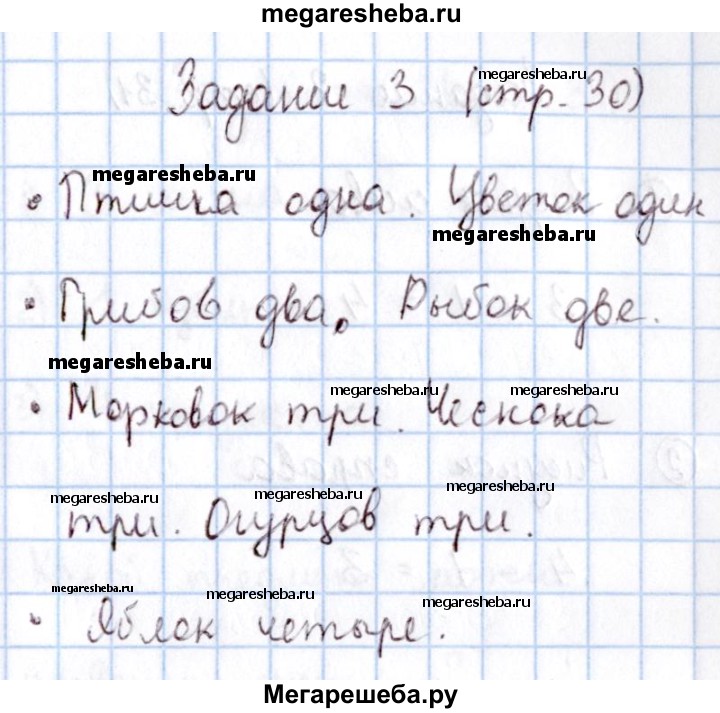 megaresheba.ru
Задание 3 (стр. 30)
megaresheba.ru
megaresheba.ru
• Птичка одна. Цветок один
megaresheba.ru
• Грибов два. Рыбок две.
megaresheba.ru
• Морковок три. Чеснока
megaresheba.ru
megaresheba.ru
три. Огурцов три.
megaresheba.ru
megaresheba.ru
megaresheba.ru
• Яблок четыре.
megaresheba.ru
megaresheba.ru
megaresheba.ru
Мегарешеба.ру